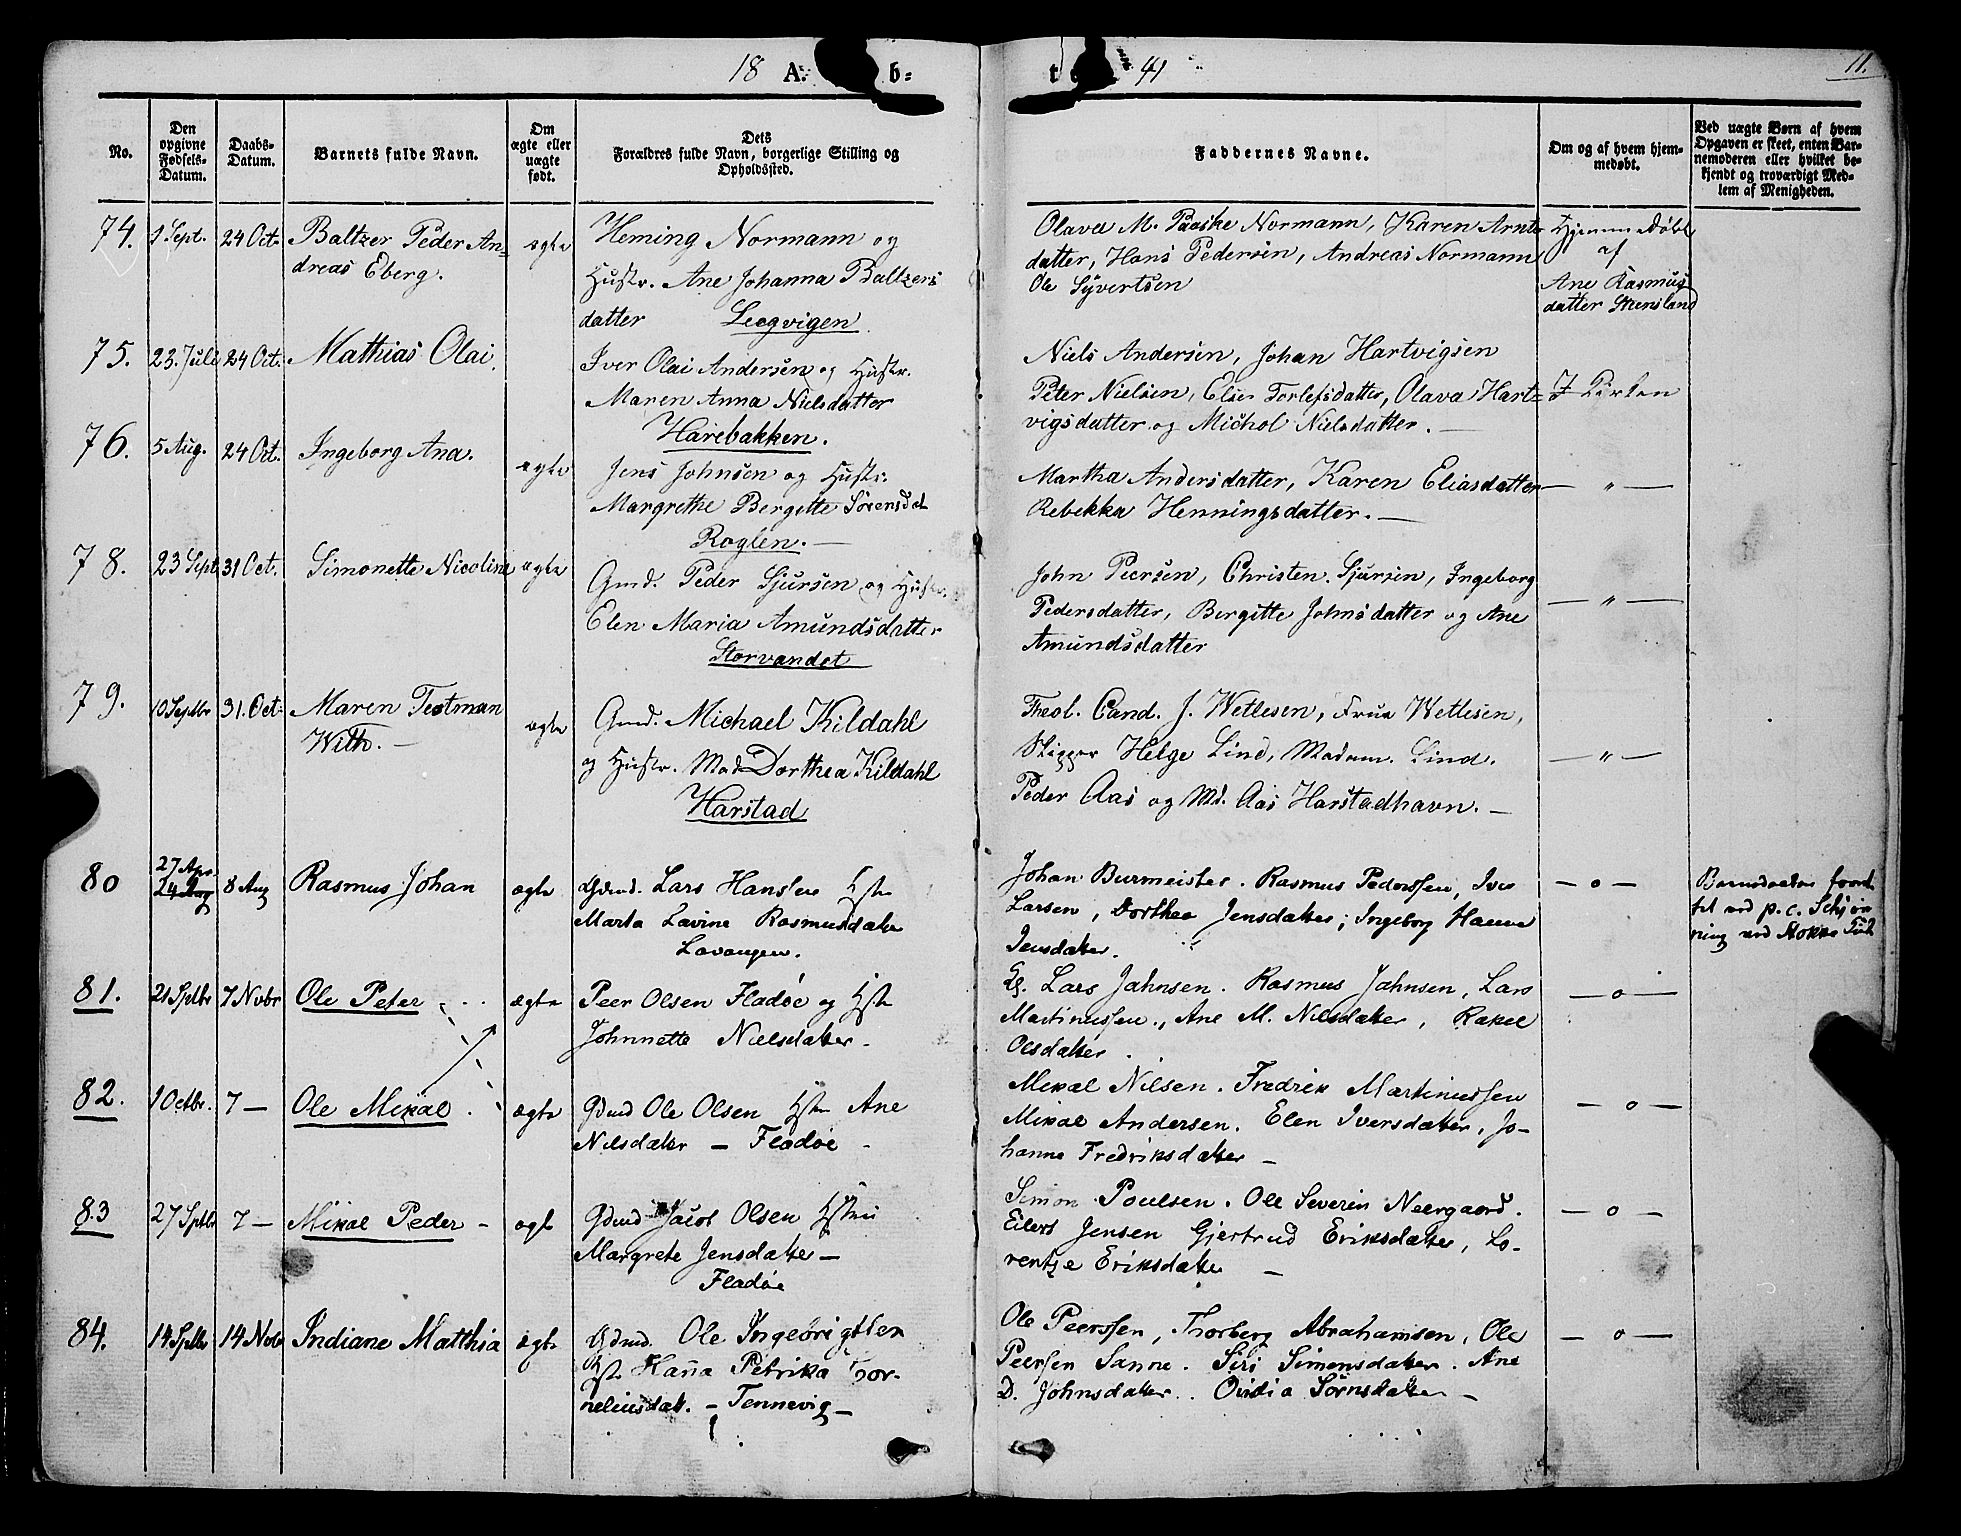 18 A. b: t 41
11.
No.
Den opgivne Fødsels-Datum.
Daabs-Datum.
Barnets fulde Navn.
Om ægte eller uægte født.
Dets Forældres fulde Navn, borgerlige Stilling og Opholdssted.
Faddernes Navne.
Om og af hvem hjem-medøbt.
Ved uægte Børn af hvem Opgaven er skeet, enten Bar-nemoderen eller hvilket be-kjendt og troværdigt Med-lem af Menigheden.
74. 1 Sept. 24 Oct. Baltzer Peder An= ægte Heming Normann og
dreas Eberg.
Hustr. Ane Johanna Baltzers
datter
Olava M. Paaske Normann, Karen Arnts
datter, Hans Pedersen, Andreas Normann
Ole Syvertsen
Hjemmedøbt
af
Ane Rasmus
datter
75. 23. Juli 24 Oct. Mathias Olai. Iver Olai Andersen og Hustr.
Maren Anna Nielsdatter
Harebakken.
Niels Andersen, Johan Hartvigsen
Peter Nielsen, Elen Torlefsdatter, Olava Hart=
vigsdatter og Michol Nielsdatter. —
I Kirken
76. 5 Aug. 24 Oct. Ingeborg Ana. ægte Jens Johnsen og Hustr.
Margrethe Bergitte Sørensdat
Roglen. —
Martha Andersdatter, Karen Eliasdatter
Rebekka Henningsdatter. —
— " —
78. 23 Sept 31 Oct. Simonette Nicoline ægte Gmd. Peder Sjursen og Hustr.
Elen Maria Amundsdatter
Storvandet
John Peersen, Christen Sjursen, Ingeborg
Pedersdatter, Bergitte Johnsdatter og Ane
Amundsdatter
— " —
79. 10 Septbr 31. Oct. Maren Testman ægte Gmd. Michael Kildahl
With. —
og Hustr. Mad Dorthea Kildahl
Harstad
Theol. Cand. J. Wetlesen, Frue Wetlesen,
Skipper Helge Lind, Madam. Lind.
Peder Aas og Md. Aas Harstadhavn. —
— " —
80 27 Apr. 8 Aug Rasmus Johan ægte Gdmd. Lars Hansen Hstr
24 Aug
Marta Lavine Rasmusdatter
Lavangen.
Johan Burmeister. Rasmus Pederssen, Iver
Larsen, Dorthea Jensdatter; Ingeborg Hanna
Jensdatter.
— o —
ved P. C.
ved
81. 21 Septbr 7 Novbr Ole Peter ægte Peer Olsen Fladøe og Hstr
Johnnette Nielsdatter.
Lars Jahnsen. Rasmus Jahnsen, Lars
Martinussen., Ane M. Nilsdatter, Rakel
Olsdatter.
— o —
82. 1 Octbr. 7 — Ole Mikal. ægte Gdmd Ole Olsen Hstr Ane
Nilsdatter — Fladøe
Mikal Nilsen. Fredrik Martinussen
Mikal Andersen. Elen Iversdatter, Jo-
hanne Fredriksdatter —
— o —
83 27 Septbr 7 — Mikal Peder - ægte Gdmd Jacob Olsen Hstru
Margrete Jensdatter —
Fladøe
Simon Poulsen. Ole Severin Neergaard.
Eilert Jensen Gjertrud Eriksdatter, Lo-
rentze Eriksdatter —
— o —
84. 14 Septbr 14 Novbr Indiane Matthia ægte Gdmd. Ole Ingebrigtsen
Hst Hanna Petrika Cor-
neliusdatt. — Tennevig —
Ole Peerssen, Thorberg Abrahamsen, Ole
Peersen Sanne. Siri Simonsdatter. Ane
D. Johnsdatter. Ovidia Sørnsdatter —
— o —